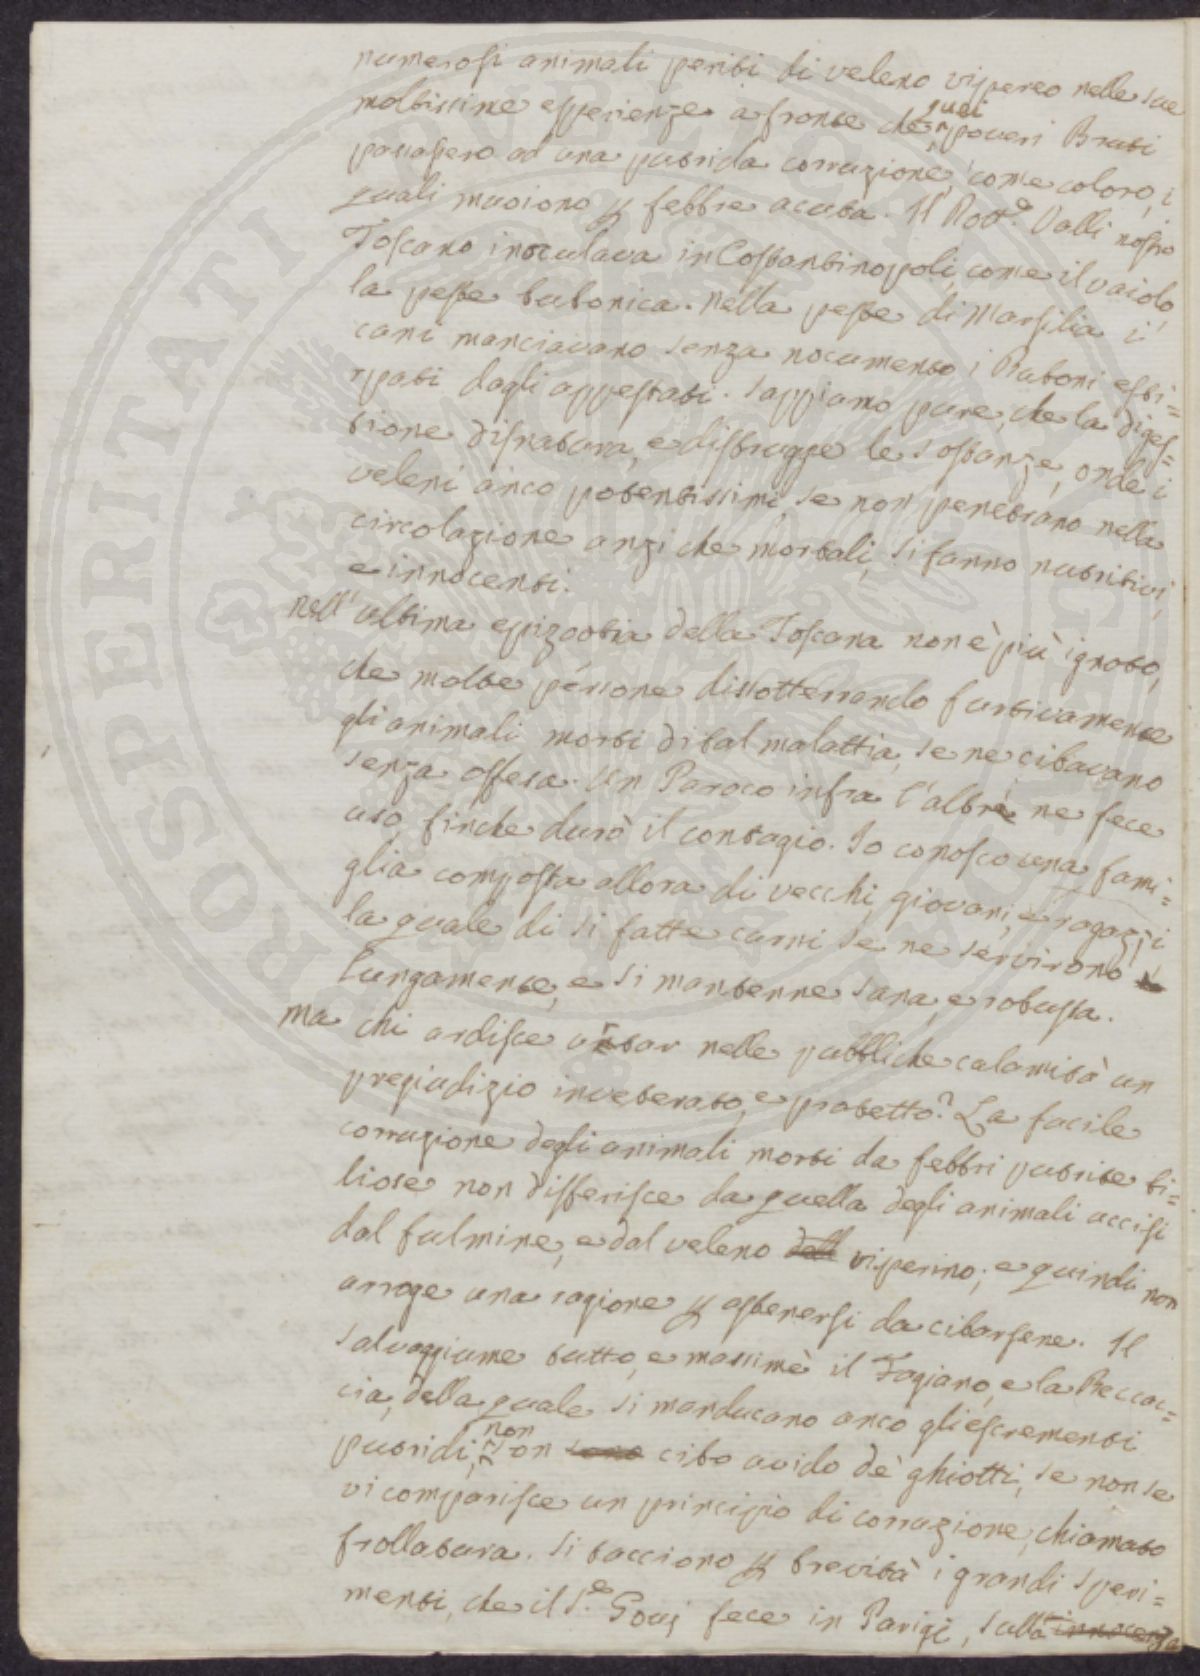 numerosi animali periti di veleno vipereo nelle sue
moltissime esperienze a fronte che quei poveri Bruti
passassero ad una putrida corruzione, come coloro, i
quali muoiono p febbre acuta. Il Dott.e Valli nostro
Toscano inoculava in Costantinopoli, come il vaiolo,
la peste bubonica. Nella peste di Marsilia i
cani manciavano senza nocumento i Buboni esti=
rpati dagli appestati. Sappiamo pure, che la diges=
tione disnatura, e distrugge le sostanze, onde i
veleni anco potentissimi, se non penetrano nella
circolazione anzi che mortali, si fanno nutritivi,
e innocenti.
Nell'ultima epizootia della Toscana non è più ignoto,
che molte persone dissotterrando furtivamente
gli animali morti di tal malattia, se ne cibavano
senza offesa. Un Paroco infra l'altre ne fece
uso, finche durò il contagio. Io conosco una fami=
glia composta allora di vecchi, giovani, e ragazzi,
la quale di si fatte carni se ne servirono
lungamente, e si mantenne sana, e robusta.
Ma chi ardisce urtar nelle pubbliche calamità un
pregiudizio inveterato, e protetto? La facile
corruzione degli animali morti da febbri putride bi=
liose non differisce da quella degli animali uccisi
dal fulmine, e dal veleno dell viperino; e quindi non
arroge una ragione p astenersi da cibarsene. Il
salvaggiume tutto, e massimè il Fagiano, e la Beccac=
cia, della quale si manducano anco gli escrementi
putridi, non son sono cibo avido de' ghiotti, se non se
vi comparisce un principio di corruzione, chiamato
frollatura. Si tacciono p brevità i grandi speri=
menti, che il S.e Gouj fece in Parigi, sulla innocenza